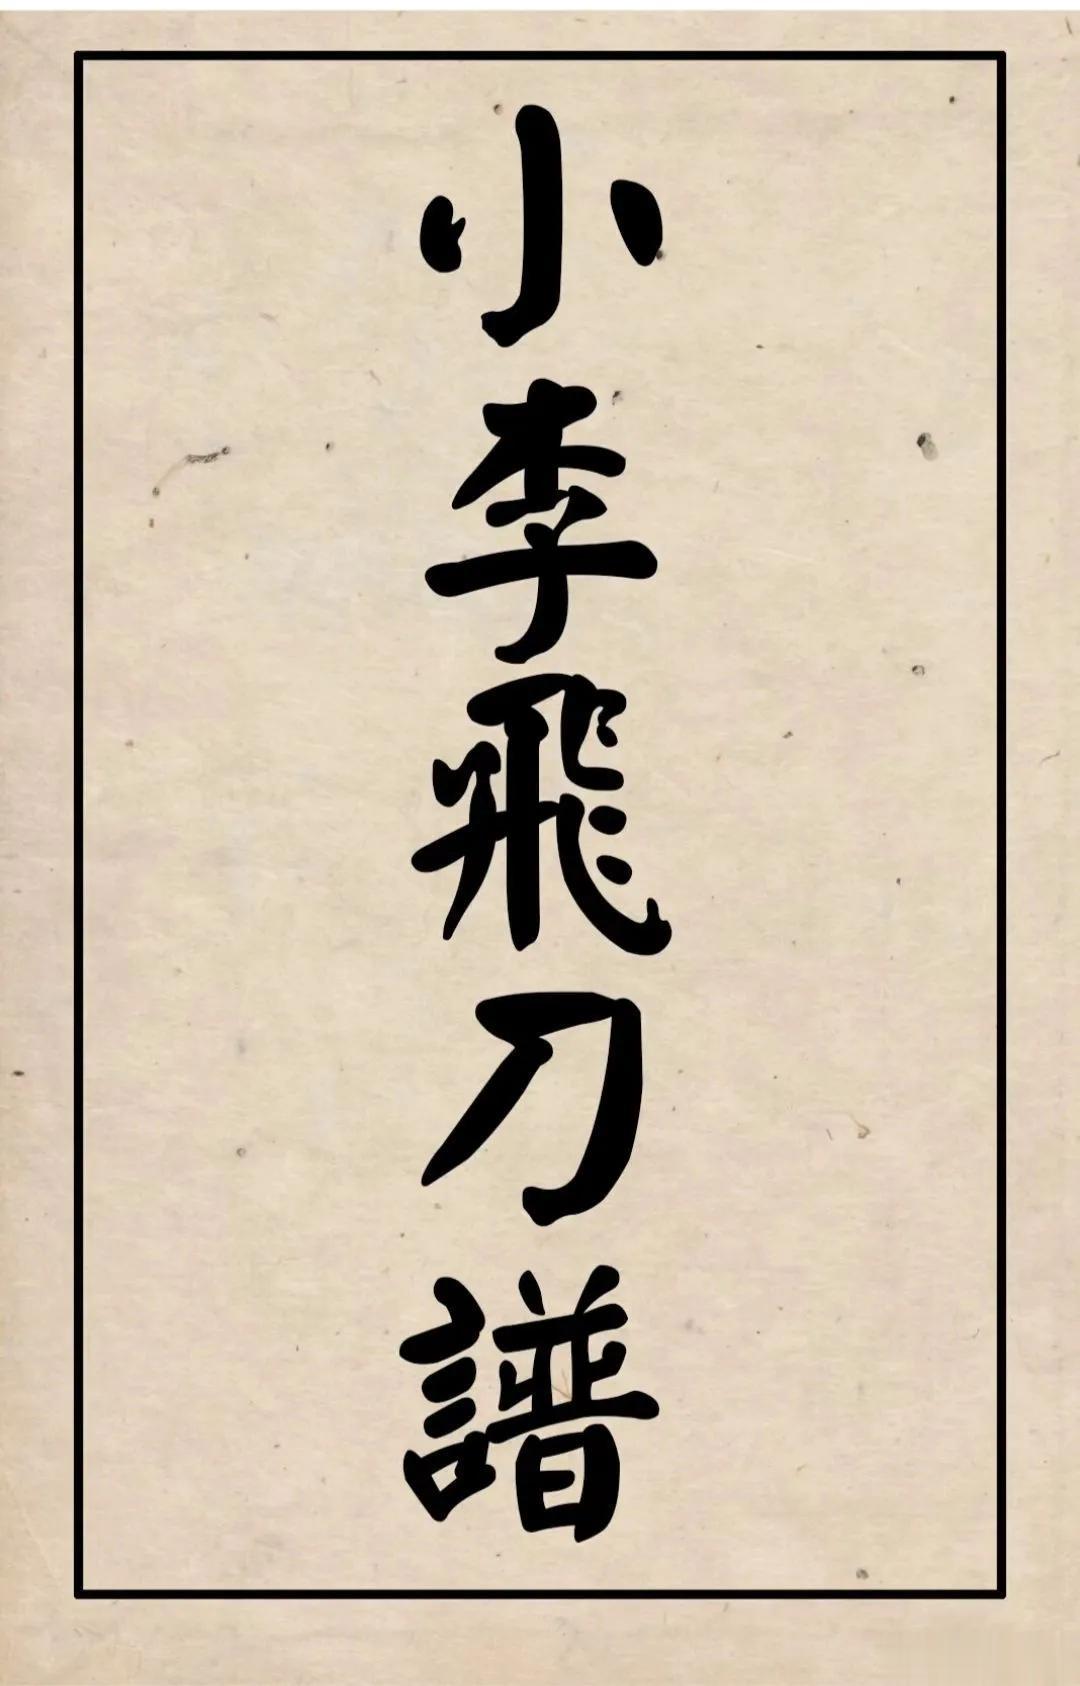 小李飛刀譜